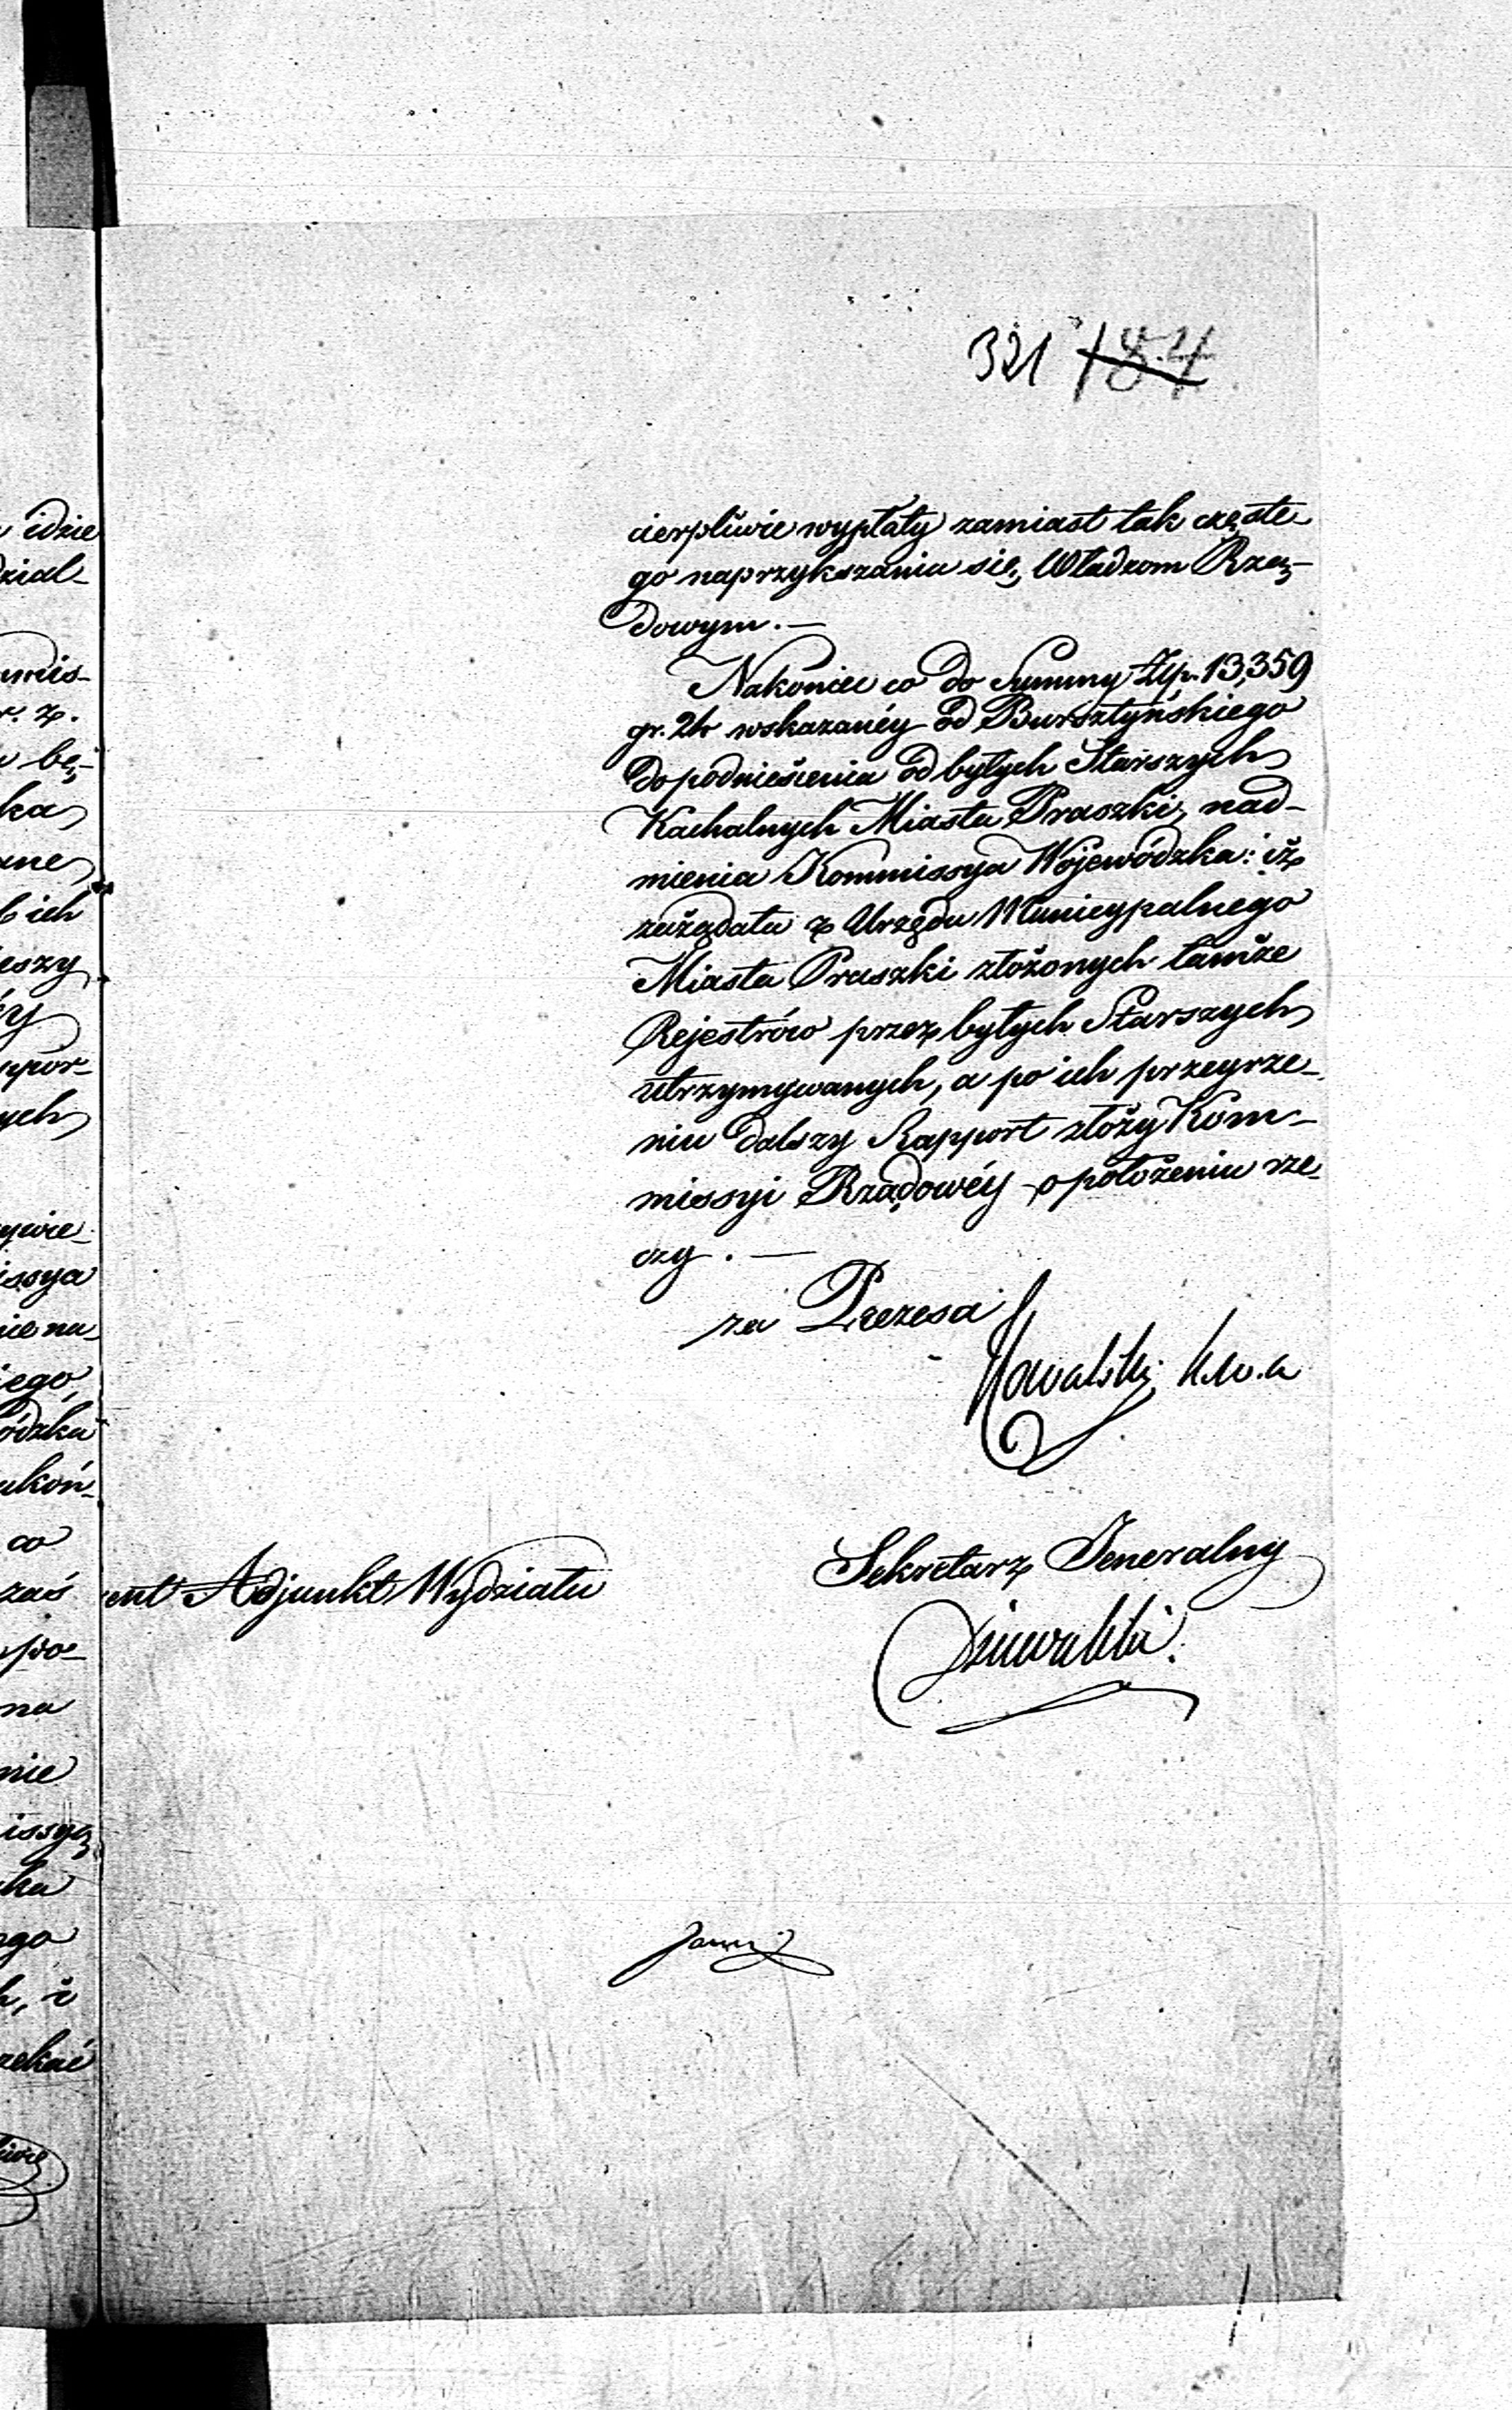 321 184
cierpliwie wypłaty zamiast tak częste-
go naprzykszania się, Władzom Rzą-
dowym. —
Nakoniec co do Summy Złp. 13,359
gr. 24 wskazanéy od Bursztyńskiego
do podniesienia od byłych Starszych
Kachalnych Miasta Praszki, nad-
mienia Kommissya Wojewódzka: iż
zażądała z Urzędu Municypalnego
Miasta Praszki złożonych tamże
Rejestrów przez byłych Starszych
utrzymywanych, a po ich przeyrze-
niu dalszy Rapport złoży Kom-
missyi Rządowéy o położeniu rze-
czy. —
za Prezesa
Kowalski K.W.
Sekretarz Jeneralny
ent Adjunkt Wydziału
idzie
dział-
r. z.
bę-
ka
ich
eszy
éy
ych
issya
iego
ódzka
ukoń-
co
zaś
po-
na
nie
issyą
ka
ego
h, i
zekać